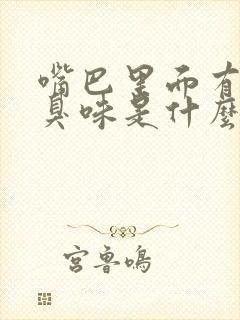 嘴巴里而有
臭味是什麼
宫鲁鸣